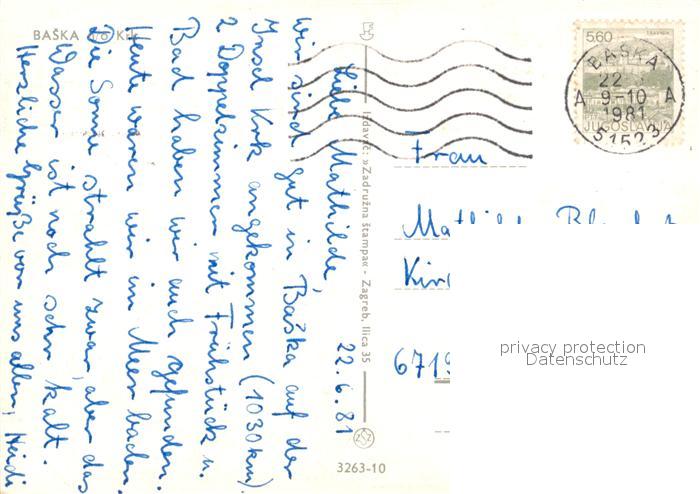 BAŠKA n/o Krk
Liebe Mathilde,
22.6.81
wir sind gut in Baška auf der
Insel Krk angekommen (1030km).
2 Doppelzimmer mit Frühstück u.
Bad haben wir auch gefunden.
Heute waren wir im Meer baden.
Die Sonne strahlt zwar, aber das
Wasser ist noch sehr kalt.
Herzliche Grüße von uns allen, Heidi
Izdavač: »Zadružna štampa« - Zagreb, Ilica 35
3263-10
5.60
TRAVNIK
JUGOSLAVIJA
BAŠKA
22
A 9-10 A
1981
51523
Frau
6719
privacy protection
Datenschutz